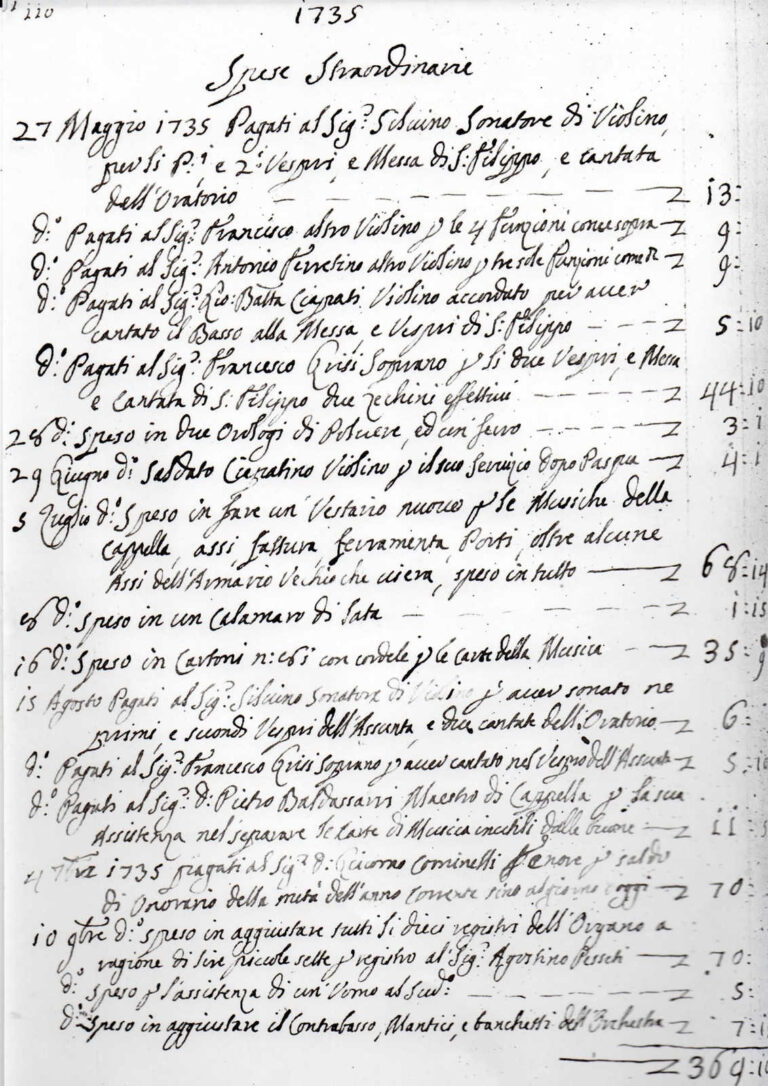 110
1735
Spese Straordinarie
27 Maggio 1735 Pagati al Sig.r Silvino Sonatore di Violino,
per li P.i, e 2.i Vespri, e Messa di S: Filippo, e Cantata
dell'Oratorio — — — — — — — — L 13:
d.o Pagati al Sig.r Francesco altro Violino p le 4 funzioni come sopra L 9:
d.o Pagati al Sig.r Antonio Ferretino altro Violino p tre sole funzioni come d.e L 9:
d.o Pagati al Sig.r Gio: Batta Violino accordato per aver
cantato il Basso alla Messa, e Vespri di S: Filippo — — — L 5:10
d.o Pagati al Sig.r Francesco Grisi Soprano p li due Vespri, e Messa
e Cantata di S: Filippo due Zechini effettivi — — — — L 44:10
28 d.o Speso in due Orologi di Polvere, ed un ferro — — — L 3:1
29 Giugno d.o Saldato Violino p il suo Servizio dopo Pasqua — L 4:1
5 Luglio d.o Speso in fare un' Vestario nuovo p le Musiche della
Cappella, assi, fattura, ferramenta, Porti, oltre alcune
Assi dell'Armario Vechio che visera, speso in tutto — L 68:14
8 d.o Speso in un Calamaro di — — — — — — L 1:15
16 d.o Speso in Cartoni n: con cordele p le Carte della Musica — L 35:9
15 Agosto Pagati al Sig.r Silvino Sonatore di Violino p aver sonato ne
primi, e secondi Vespri dell'Assunta, e due cantate dell'Oratorio — L 6:
d.o Pagati al Sig.r Francesco Grisi Soprano p aver cantato nel Vespro dell'Assunta L 5:10
d.o Pagati al Sig.r D: Pietro Baldassarri Maestro di Cappella p la sua
Assistenza nel separare le Carte di Musica inutili dalle buone — L 11:5
4 7bre 1735 pagati al Sig.r D: Giacomo Cominelli Tenore p saldo
di Onorario della metà dell'anno corrente sino al giorno d'oggi — L 70:
10 9bre d.o speso in aggiustare tutti li dieci registri dell'Organo a
ragione di lire piccole sette p registro al Sig.r Agostino — L 70:
d.o speso p l'assistenza di un' Uomo al Sud.o — — — — L 5:
d.o Speso in aggiustare il Contrabasso, Mantici, e banchetti dell'Orchestra L 7:1
L 369:10